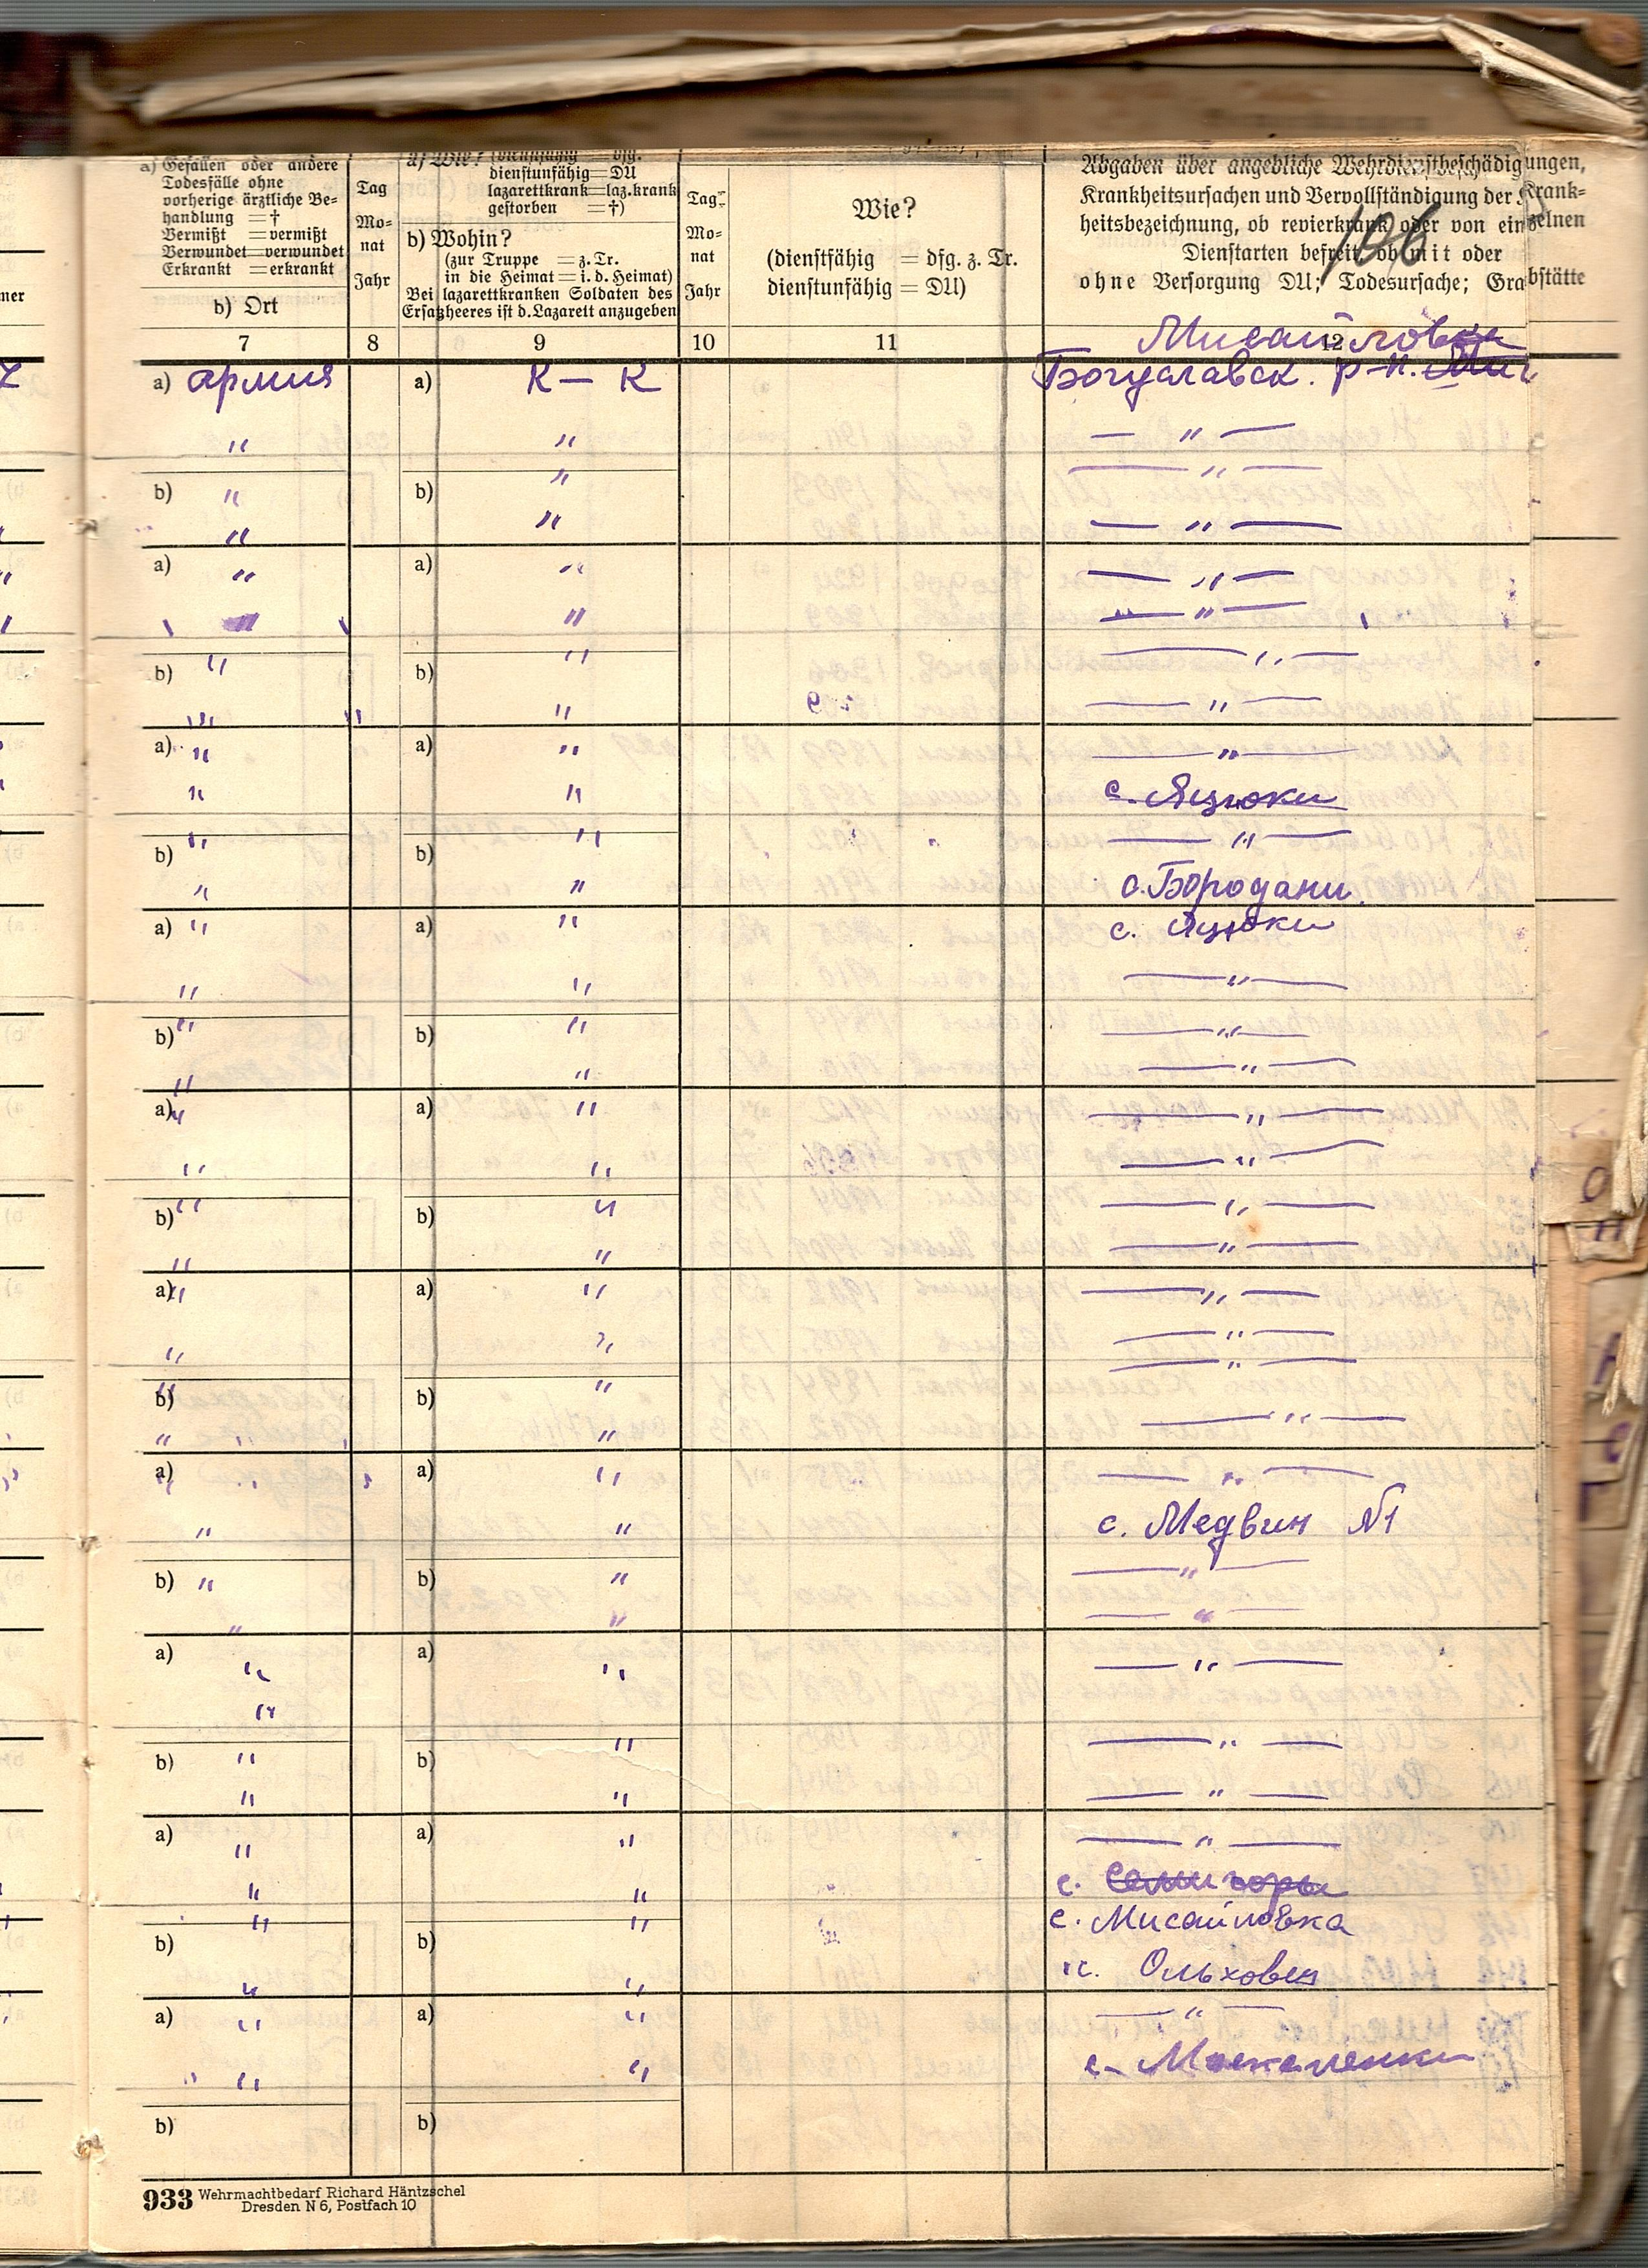 a) Gefallen oder andere
Todesfälle ohne
vorherige ärztliche Be-
handlung = †
Vermißt = vermißt
Verwundet = verwundet
Erkrankt = erkrankt
b) Ort
Tag
Mo-
nat
Jahr
a) Wie? (dienstfähig = dfg.
dienstunfähig = DU
lazarettkrank = laz.krank
gestorben = †)
b) Wohin?
(zur Truppe = z. Tr.
in die Heimat = i. d. Heimat)
Bei lazarettkranken Soldaten des
Ersatzheeres ist d. Lazarett anzugeben
Tag
Mo-
nat
Jahr
Wie?
(dienstfähig = dfg. z. Tr.
dienstunfähig = DU)
Abgaben über angebliche Wehrdienstbeschädigungen,
Krankheitsursachen und Vervollständigung der Krank-
heitsbezeichnung, ob revierkrank oder von einzelnen
Dienstarten befreit, ob mit oder
ohne Versorgung DU; Todesursache; Grabstätte
106
7 8 9 10 11 12
Мисайловка
a) армия a) К — К Богуславск. р-н.
" " — " —
b) " b) " — " —
" " — " —
a) " a) " — " —
" " — " —
b) " b) " — " —
" " — " —
a) " a) " — " —
" " с. Яцюки
b) " b) " — " —
" " с. Бородани
a) " a) " с. Яцюки
" " — " —
b) " b) " — " —
" " — " —
a) " a) " — " —
" " — " —
b) " b) " — " —
" " — " —
a) " a) " — " —
" " — " —
b) " b) " — " —
" " — " —
a) " a) " — " —
" " с. Медвин №1
b) " b) " — " —
" " — " —
a) " a) " — " —
"
b) " b) " — " —
" " — " —
a) " a) " — " —
" " с. Семигоры
b) " b) " с. Мисайловка
" " с. Ольховец
a) " a) " — " —
" " с. Москаленки
b) b)
933 Wehrmachtbedarf Richard Häntzschel
Dresden N 6, Postfach 10